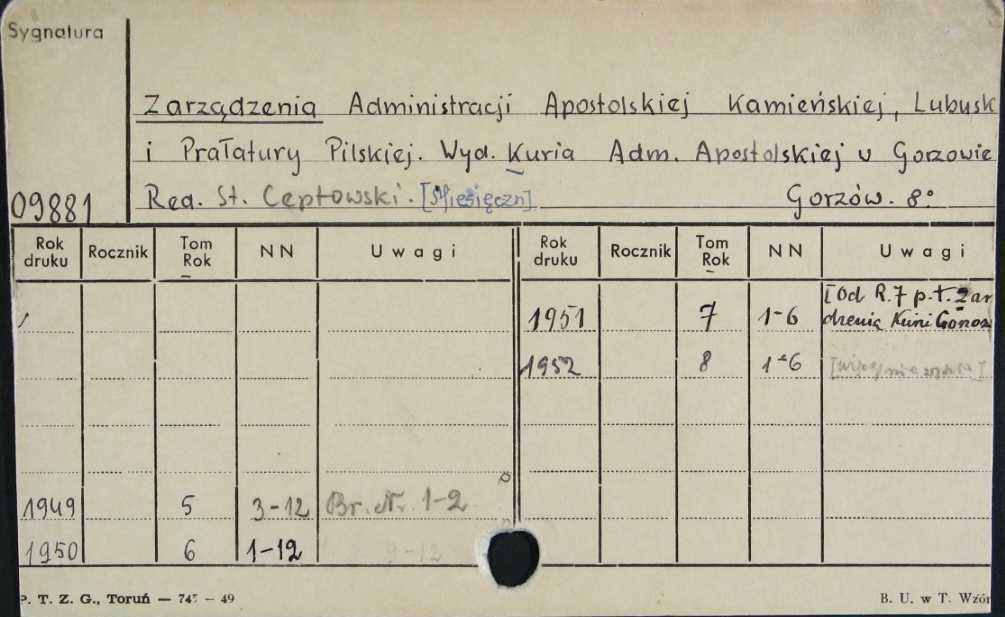 Sygnatura
Zarządzenia Administracji Apostolskiej Kamieńskiej, Lubusk
i Prałatury Pilskiej. Wyd. Kuria Adm. Apostolskiej w Gorzowie
09881 Red. St. Ceptowski. [Miesięczn] Gorzów. 8°
Rok druku Rocznik Tom Rok NN Uwagi Rok druku Rocznik Tom Rok NN Uwagi
1951 7 1-6 [Od R. 7 p.t. Zar
dzenia Kurii Gorzo
1952 8 1-6
1949 5 3-12 Br. Nr. 1-2
1950 6 1-12 9-12
P. T. Z. G., Toruń — 745 — 49 B. U. w T. Wzór